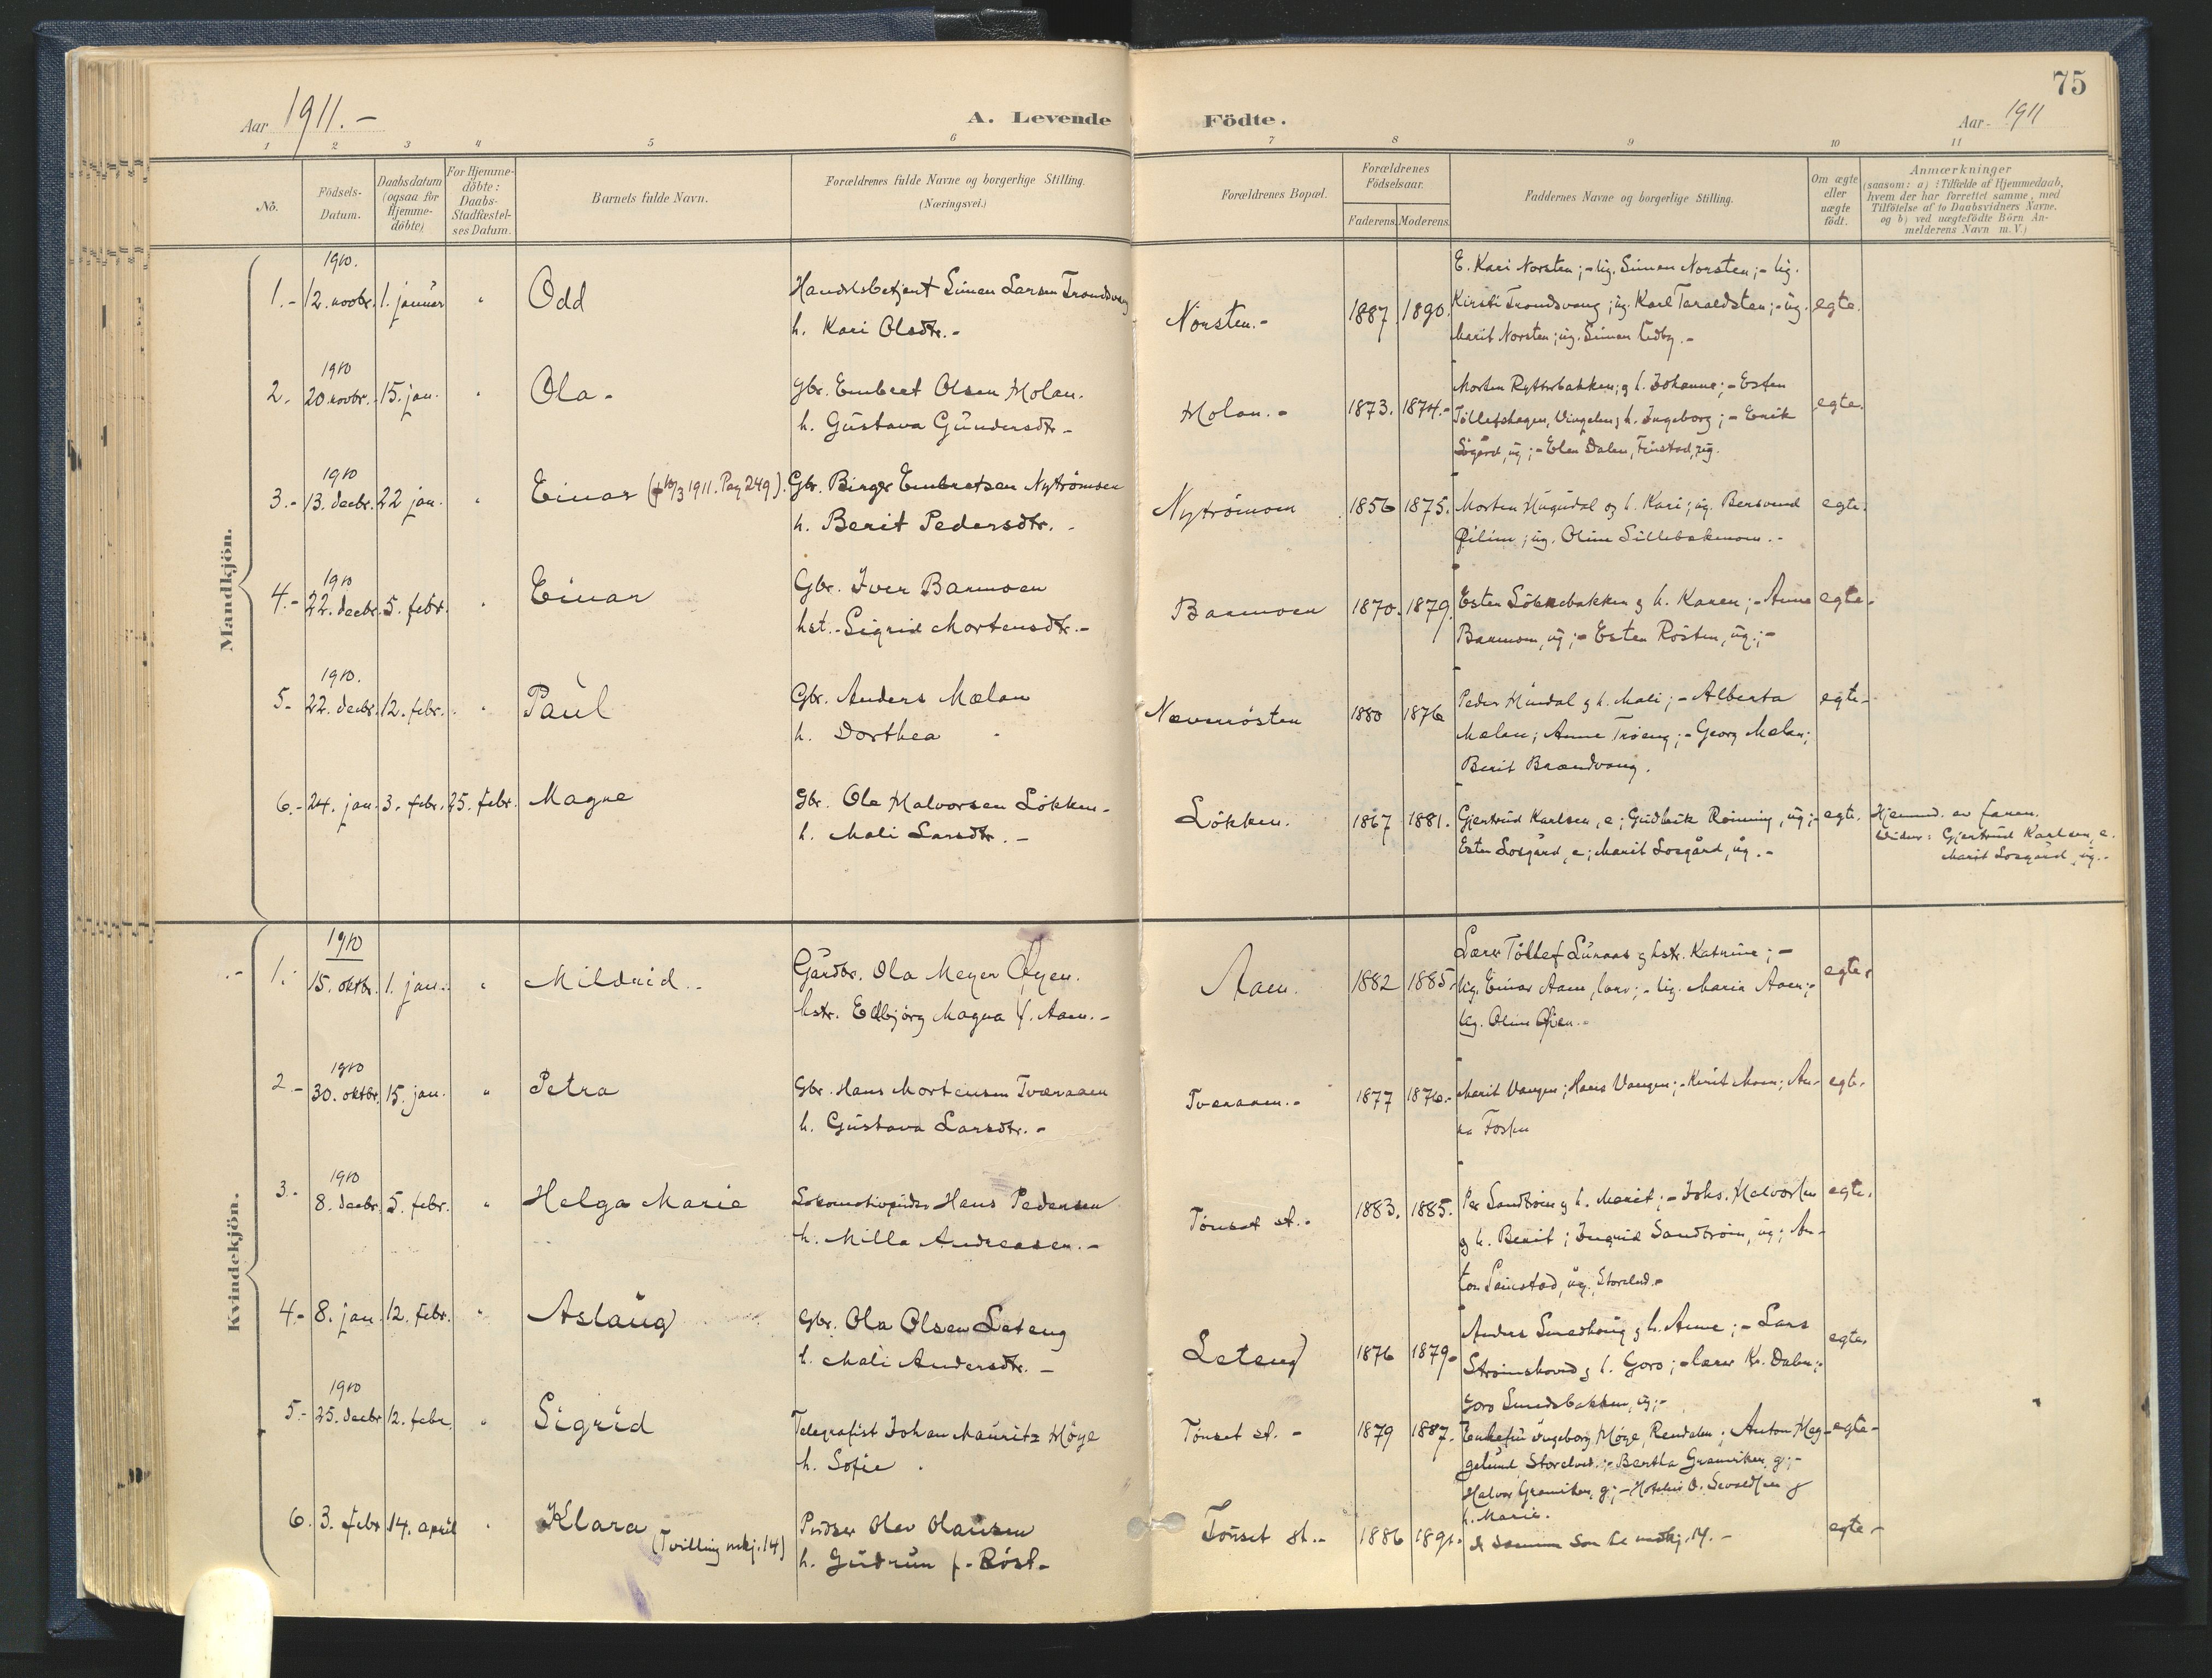 75
Aar 1911.-
A. Levende Födte.
Aar 1911
1 2 3 4 5 6 7 8 9 10 11
No.
Födsels-Datum.
Daabsdatum (ogsaa for Hjemme-döbte)
For Hjemme-döbte: Daabs-Stadfæstel-ses Datum.
Barnets fulde Navn.
Forældrenes fulde Navne og borgerlige Stilling.
(Næringsvei.)
Forældrenes Bopæl.
Forældrenes Födselsaar.
Faderens. Moderens.
Faddernes Navne og borgerlige Stilling.
Om ægte eller uægte födt.
Anmærkninger
(saasom: a) i Tilfælde af Hjemmedaab,
hvem der har forrettet samme, med
Tilföielse af to Daabsvidners Navne,
og b) ved uægtefödte Börn An-
melderens Navn m.V.)
Mandkjön.
1910.
1.- 12. novbr. 1. januar " Odd
Handelsbetjent Simen Larsen Trondsvang
h. Kari Olsdtr.-
Norsten.- 1887. 1890.
E. Kari Norsten;- Ug. Simen Norsten;- Ug.
Kirsti Trondsvang; ug. Karl Taraldsten;- ug.
Marit Norsten; ug. Simen
egte.
1910
2. 20. novbr. 15. jan. " Ola.
Gbr. Embret Olsen Molan.
h. Gustava Gundersdtr.-
Molan.- 1873. 1874.-
Morten Rytterbakken; og h. Johanne;- Esten
Tollefshagen, Vingelen og h. Ingeborg;- Erik
ug;- Elen Dalen, Finstad, ug.
egte.
1910
3.- 13. decbr. 22 jan. " Einar († 10/3 1911. Pag 249).
Gbr. Birger Embretsen Nytrömoen
h. Berit Pedersdtr.-
Nytrömoen 1856 1875.
Morten Hugudal og h. Kari; ug. Bersvend
ug. Oline
egte.
1910
4.- 22. decbr. 5. febr. " Einar
Gbr. Iver Barmoen
hst.- Sigrid Mortensdtr.-
Barmoen 1870. 1879.
Esten og h. Karen;- Anne
Barmoen, ug;- Esten Rösten, ug.;-
egte.
1910.
5.- 22. decbr. 12. febr. " Paul
Gbr. Anders Mælan
h. Dorthea
Næverrösten 1880 1876
Peder og h. Mali;- Alberta
Mælan; Anne Tröeng;- Georg Mælan;
Berit Brændvang.
egte.
6.- 24. jan. 3. febr. 25. febr. Magne
Gbr. Ole Halvorsen Lökken.
h. Mali Larsdtr.-
Lökken. 1867 1881.
Gjertrud Karlsen, e; Gudbrik Rönning, ug;-
Esten Losgård, e; Marit Losgård, ug.-
egte.
Hjemmed. av faren.
Vidner: Gjertrud Karlsen, e.
Marit Losgård, ug.-
Kvindekjön.
1910
1. 15. oktbr. 1. jan. " Mildrid.
Gårdbr. Ola Meyer Öyen.
hstr. Edbjörg Magna f. Aaen.-
Aaen. 1882 1885.
Lærer Tollef Lunaas og hstr. Katrine;-
Ug. Einar Aaen, lærer;- Ug. Maria Aaen;-
Ug. Oline Öyen.-
egte.
1910
2.- 30. oktbr. 15. jan. " Petra
Gbr. Hans Mortensen Tveraaen
h. Gustava Larsdtr.-
Tveraaen.- 1877 1876.-
Marit Vangen; Hans Vangen;- Moen; An-
na Fossen
egte.
1910
3.- 8. decbr. 5. febr. " Helga Marie
Lokomotivpudser Hans Pedersen
h. Milla Andreasen.-
Tönset st.- 1883. 1885.
Per Sandtröen og h. Marit;- Johs. Halvorsen
og h. Berit; Ingrid Sandtröen, ug; An-
ton ug., Storelvd.-
egte.
4.- 8. jan. 12. febr. " Aslaug
Gbr. Ola Olsen Leteng
h. Mali Andersdtr.-
Leteng 1876 1879.
Anders Smedhaug og h. Anne;- Lars
Strömshoved og h. Goro;- lærer Kr. Dalen;-
Goro Smedsbakken, ug;-
egte.
1910
5.- 25. decbr. 12. febr. " Sigrid
Telegrafist Johan Mauritz Höye
h. Sofie
Tönset st.- 1879 1887.
Enkefru Ingeborg Höye, Rendalen; Anton Hag-
gelund, Storelvd.;- Bertha Gramviken, g;-
Halvor Gramviken, g;- Hotelier O. Sevaldsen og
h. Marie.
egte-
6. 3. febr 14. april " Klara (Tvilling mkj. 14)
Pudser Olav Olausen
h. Gudrun f. Röst-
Tönset st.- 1886 1891.
de samme som til mkj. 14.-
egte-